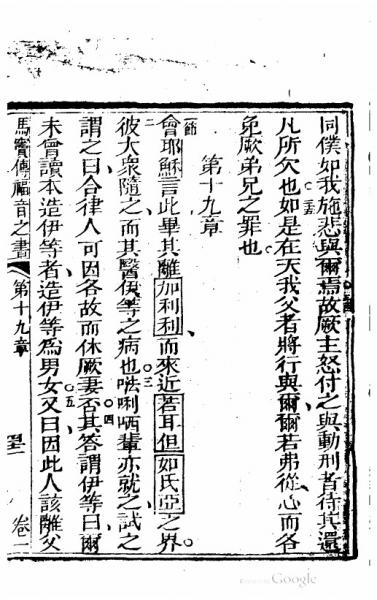 同僕如我施悲與爾焉故厥主怒付之與動刑者待其還
凡所欠也如是在天我父者將行與爾爾若弗從心而各
免厥弟兄之罪也
第十九章
一節
會耶穌言此畢其離加利利而來近若耳但如氐亞之界
二
彼大衆隨之、而其醫伊等之病也。三㗒唎哂輩亦就之、試之
謂之曰、合律人可因各故而休厥妻否。四其答謂伊等曰、爾
未曾讀本造伊等者、造伊等爲男女。五又曰、因此人該離父
馬竇傳福音之書 第十九章 卷一
Google